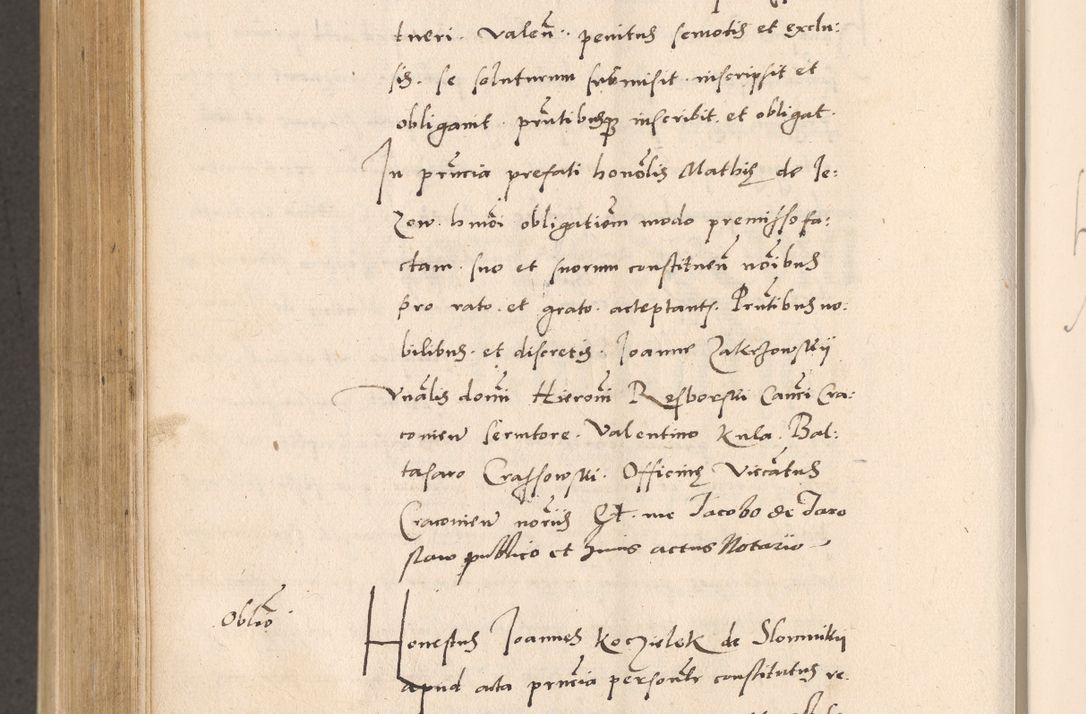 tueri. Valeñ. penitus semotis et exclu:
sis. se soluturum submisit. inscripsit et
obligavit. pñtibusq̃ inscribit. et obligat.
In pñcia prefati honõlis Mathiȩ de Ie:
zow. hmõi obligatiõm modo premisso fa:
ctam. suo et suorum constitueñ nõibus
pro rato. et grato. acceptantȩ. Pñtibus no:
bilibus. et discretis. Joanne Zakrzowskij
Vnãlis domĩ Hieronĩ Resborski Canci Cra:
covien̄ servitore. Valentino Kula. Bal:
tasaro Crassowski. Officiiȩ Vicãtus
Cracovien̄ norijs Et. me Jacobo de Jaro
slaw publico et huius actus Notario
Oblio
Honestus Joannes Koczielek de Slomnikij
apud acta pñcia personlr constitutus re.